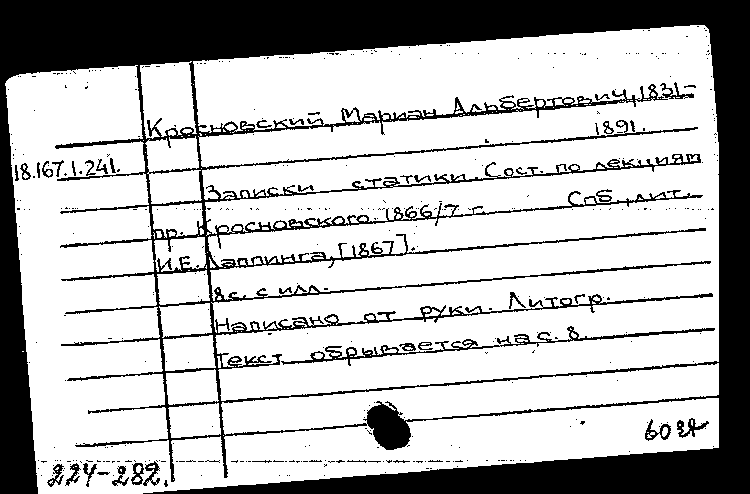 Кросновский, Мариан Альбертович, 1831-
1891.
18.167.1.241.
Записки статики. Сост. по лекциям
пр. Кросновского 1866/7 г. Спб., лит.
И.Е. Лаппинга, [1867].
8 с. с илл.
Написано от руки. Литогр.
Текст обрывается на с. 8.
224-282.